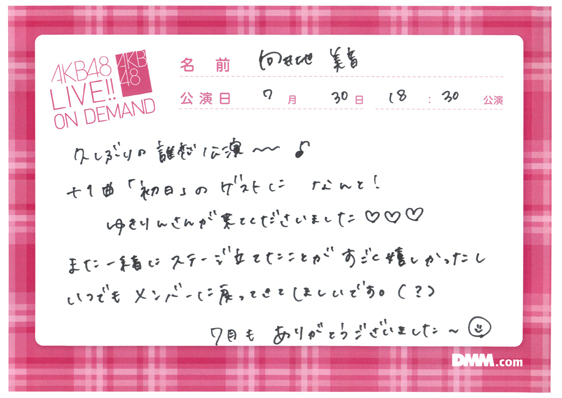 AKB48
LIVE!!
ON DEMAND
AKB
48
名前 向井地 美音
公演日 7月 30日 18:30 公演
久しぶりの誰神公演〜〜♪
+1曲「初日」のゲストに なんと!
ゆきりんさんが来てくださいました♡♡♡
また一緒にステージ立てたことがすごく嬉しかったし
いつでもメンバーに戻ってきてほしいです。(?)
7月も ありがとうございました〜☺
DMM.com